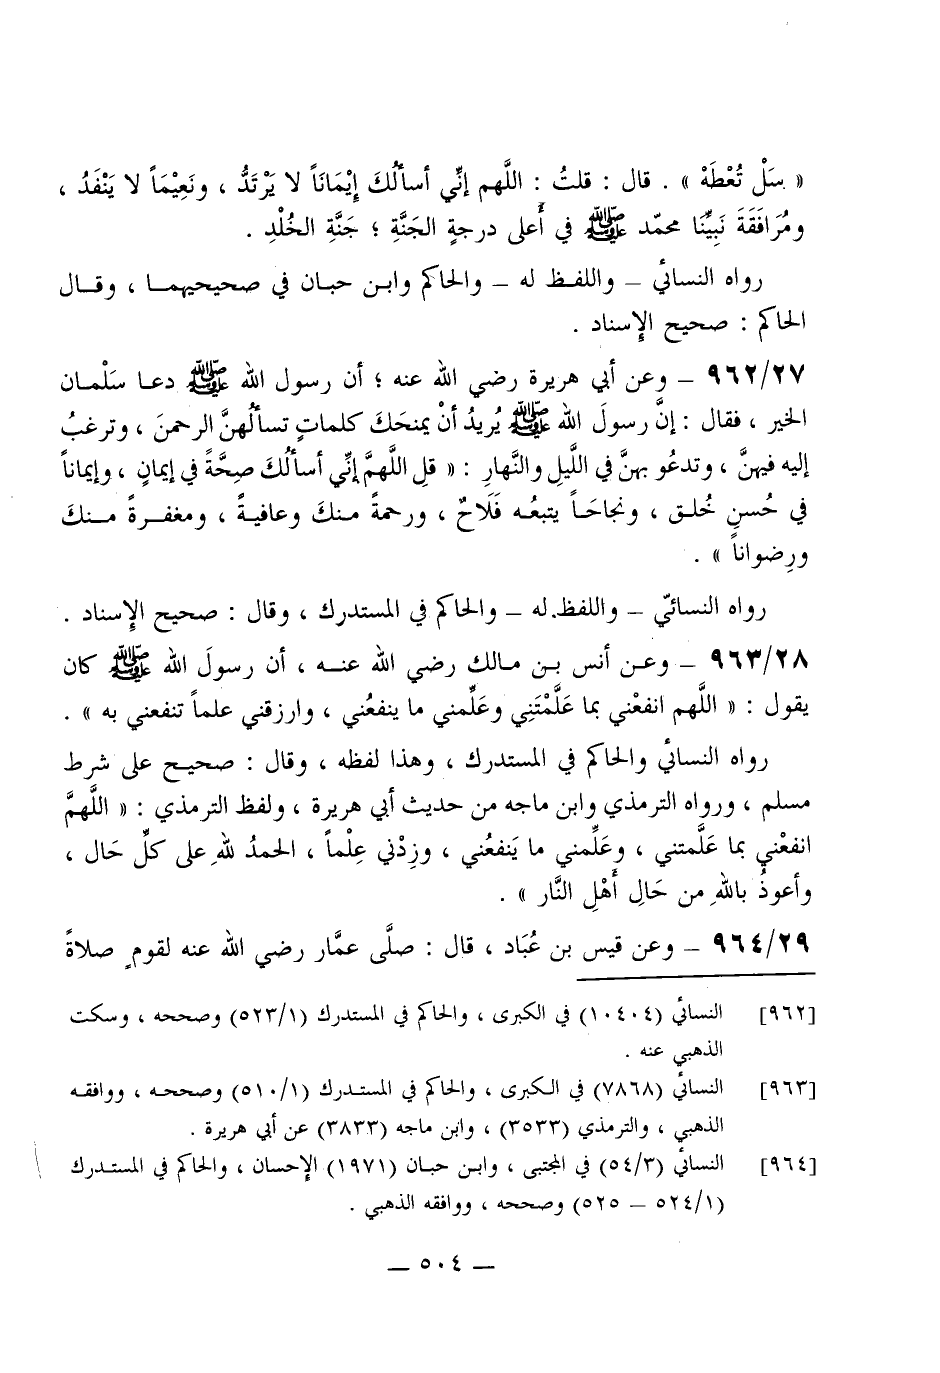 « سَلْ تُعْطَهْ » . قال : قلتُ : اللَّهم إنِّي أسألُكَ إيْمَانَاً لا يَرْتَدُّ ، ونَعِيْمَاً لا يَنْفَدُ ،
ومُرَافَقَةَ نَبِيِّنَا محمّد ﷺ في أَعلى درجةِ الجَنَّةِ ؛ جَنَّةِ الخُلْدِ .
رواه النسائي – واللفظ له – والحاكم وابن حبان في صحيحيهما ، وقال
الحاكم : صحيح الإسناد .
٩٦٢/٢٧ – وعن أبي هريرة رضي الله عنه ؛ أن رسول الله ﷺ دعا سَلْمان
الخير ، فقال : إنَّ رسولَ الله ﷺ يُريدُ أنْ يمنحَكَ كلماتٍ تسألُهنَّ الرحمنَ ، وترغبُ
إليه فيهنَّ ، وتدعُو بهنَّ في اللَّيلِ والنَّهارِ : « قلِ اللَّهمَّ إنِّي أسألُكَ صِحَّةً في إيمانٍ ، وإيماناً
في حُسنِ خُلق ، ونجاحَاً يتبعُه فَلَاحٌ ، ورحمةً منكَ وعافيةً ، ومغفرةً منكَ
ورِضواناً » .
رواه النسائيّ – واللفظ له – والحاكم في المستدرك ، وقال : صحيح الإسناد .
٩٦٣/٢٨ – وعن أنس بن مالك رضي الله عنه ، أن رسولَ الله ﷺ كان
يقول : « اللَّهم انفعْني بما عَلَّمْتَنِي وعَلِّمني ما ينفعُني ، وارزقني علماً تنفعني به » .
رواه النسائي والحاكم في المستدرك ، وهذا لفظه ، وقال : صحيح على شرط
مسلم ، ورواه الترمذي وابن ماجه من حديث أبي هريرة ، ولفظ الترمذي : « اللَّهمَّ
انفعْني بما عَلَّمتني ، وعَلِّمني ما يَنفعُني ، وزِدْني عِلْماً ، الحمدُ للهِ على كلِّ حَال ،
وأعوذُ باللهِ من حَالِ أَهْلِ النَّار » .
٩٦٤/٢٩ – وعن قيس بن عُبَاد ، قال : صلَّى عمَّار رضي الله عنه لقومٍ صلاةً
[٩٦٢] النسائي (١٠٤٠٤) في الكبرى ، والحاكم في المستدرك (٥٢٣/١) وصححه ، وسكت
الذهبي عنه .
[٩٦٣] النسائي (٧٨٦٨) في الكبرى ، والحاكم في المستدرك (٥١٠/١) وصححه ، ووافقه
الذهبي ، والترمذي (٣٥٣٣) ، وابن ماجه (٣٨٣٣) عن أبي هريرة .
[٩٦٤] النسائي (٥٤/٣) في المجتبى ، وابن حبان (١٩٧١) الإحسان ، والحاكم في المستدرك
(٥٢٤/١ – ٥٢٥) وصححه ، ووافقه الذهبي .
– ٥٠٤ –